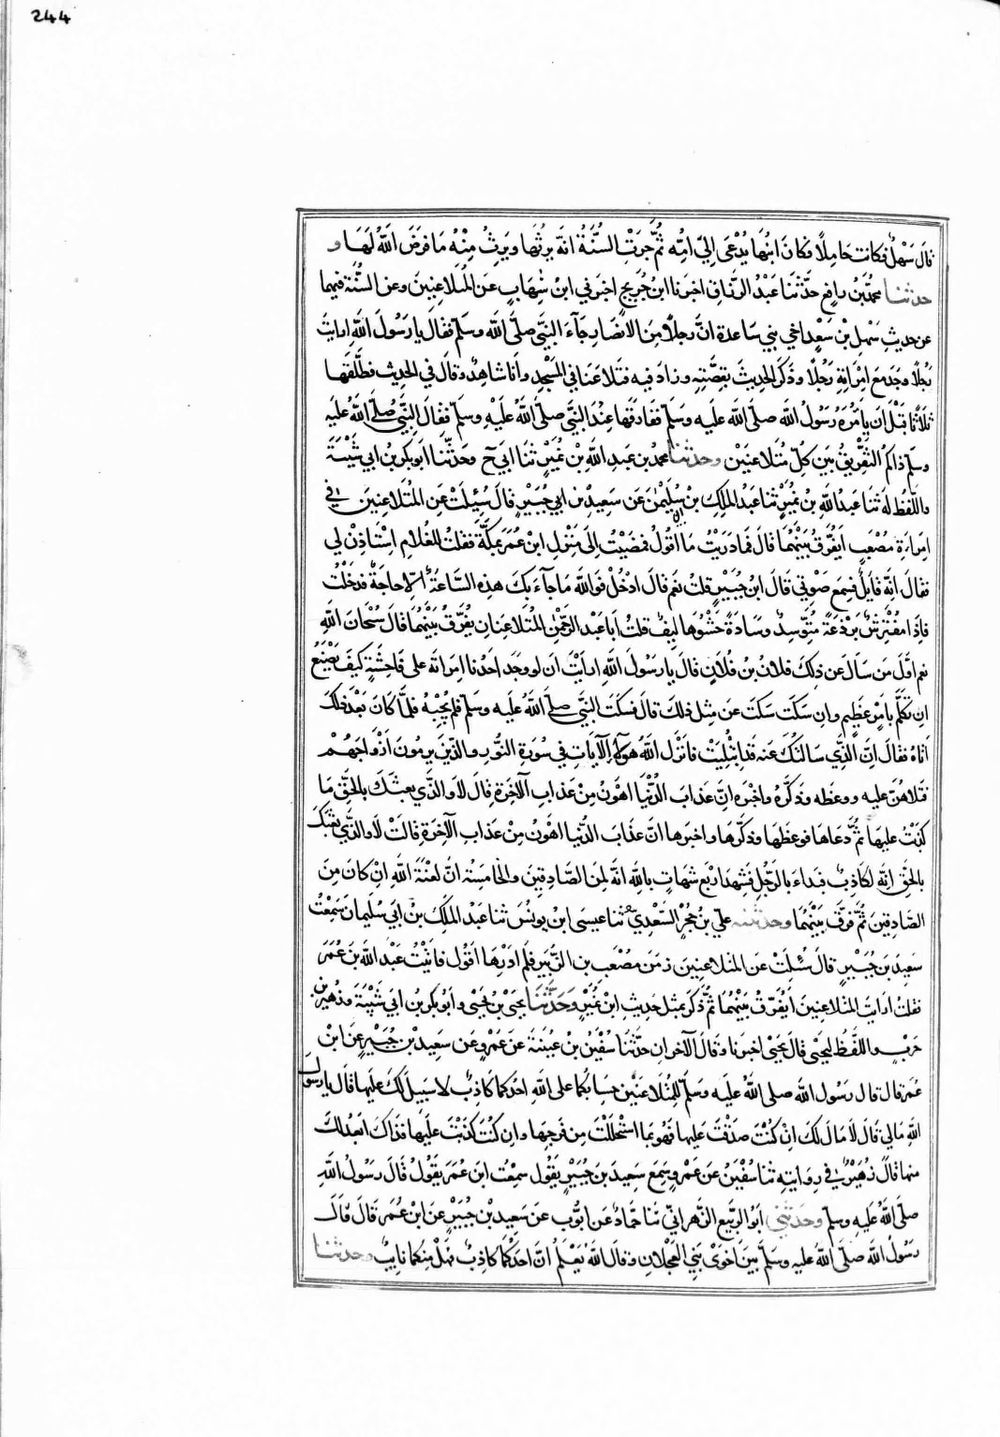 244
قال سهل فكانت حاملا فكان ابنها يدعى الي امه ثم جرت السنة انه يرثها ويرث منه ما فرض الله لها و
حدثنا محمد بن رافع حدثنا عبد الرزاق اخبرنا ابن جريج اخبرني ابن شهاب عن المتلاعنين وعن السنة فيهما
عن حديث سهل بن سعد اخي بني ساعدة ان رجلا من الانصار جاء النبي صلى الله وسلم فقال يا رسول الله ارايت
رجلا وجد مع امراته رجلا وذكر الحديث بقصته وزاد فيه فتلاعنا في المسجد وانا شاهد وقال في الحديث فطلقها
ثلاثا قبل ان يامره رسول الله صلى الله عليه وسلم ففارقها عند النبي صلى الله عليه وسلم فقال النبي صلى الله عليه
وسلم ذاكم التفريق بين كل متلاعنين وحدثنا محمد بن عبد الله بن نمير ثنا ابي ح وحدثنا ابو بكر بن ابي شيبة
واللفظ له ثنا عبد الله بن نمير ثنا عبد الملك بن سليمن عن سعيد بن ابي جبير قال سئلت عن المتلاعنين في
امراة مصعب ايفرق بينهما قال فما دريت ما اقول فمضيت الى منزل ابن عمر بمكة فقلت للغلام استاذن لي
فقال انه قايل فسمع صوتي قال ابن جبير قلت نعم قال ادخل فوالله ما جاء بك هذه الساعة الا حاجة فدخلت
فاذا مفترش برذعة متوسد وسادة حشوها ليف قلت ابا عبد الرحمن المتلاعنان يفرق بينهما قال سبحان الله
نعم اول من سال عن ذلك فلان بن فلان قال يا رسول الله ارايت ان لو وجد احدنا امراته على فاحشة كيف يصنع
ان تكلم بامر عظيم وان سكت سكت عن مثل ذلك قال فسكت النبي صلى الله عليه وسلم فلم يجبه فلما كان بعد ذلك
اتاه فقال ان الذي سالتك عنه قد ابتليت فانزل الله هولاء الآيات في سورة النور والذين يرمون ازواجهم
فتلاهن عليه ووعظه وذكره واخبره ان عذاب الدنيا اهون من عذاب الآخرة قال لا والذي بعثك بالحق ما
كذبت عليها ثم دعاها فوعظها وذكرها واخبرها ان عذاب الدنيا اهون من عذاب الآخرة قالت لا والذي بعثك
بالحق انه لكاذب فبداء بالرجل فشهد اربع شهات بالله انه لمن الصادقين والخامسة ان لعنة الله ان كان من
الصادقين ثم فرق بينهما وحدثنيه علي بن حجر السعدي ثنا عيسى ابن يونس ثنا عبد الملك بن ابي سليمان سمعت
سعيد بن جبير قال سئلت عن المتلاعنين زمن مصعب بن الزبير فلم ادر ما اقول فاتيت عبد الله بن عمر
فقلت ارايت المتلاعنين ايفرق بينهما ثم ذكر بمثل حديث ابن نمير وحدثنا يحيى بن يحيى وابو بكر بن ابي شيبة وزهير بن
حرب واللفظ ليحيى قال يحيى اخبرنا وقال الآخران حدثنا سفين بن عيينة عن عمرو عن سعيد بن جبير عن ابن
عمر قال قال رسول الله صلى الله عليه وسلم للمتلاعنين حسابكما على الله احدكما كاذب لا سبيل لك عليها قال يا رسول
الله مالي قال لا مال لك ان كنت صدقت عليها فهو بما استحللت من فرجها وان كنت كذبت عليها فذاك ابعد لك
منها قال زهير في روايته ثنا سفين عن عمرو سمع سعيد بن جبير يقول سمعت ابن عمر يقول قال رسول الله
صلى الله عليه وسلم وحدثني ابو الربيع الزهراني ثنا حماد عن ايوب عن سعيد بن جبير عن ابن عمر قال قال
رسول الله صلى الله عليه وسلم بين اخوى بني العجلان وقال الله يعلم ان احدكما كاذب فهل منكما تايب وحدثنا